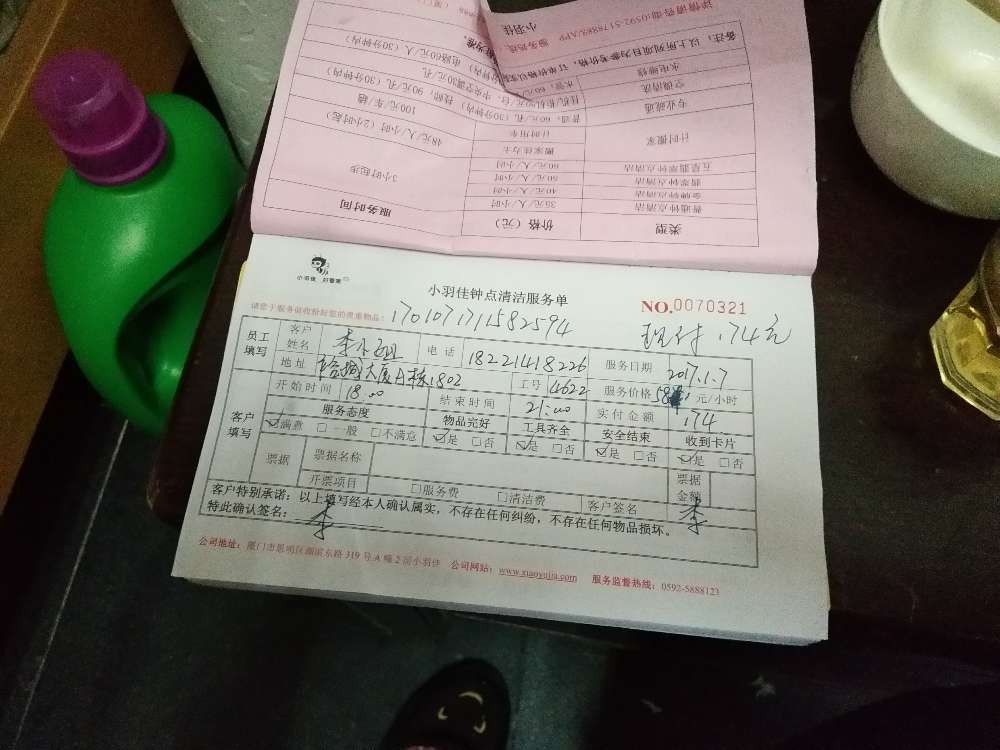 详情请咨询:0592-5178888/APP 服务热线
小羽佳
备注:以上所列项目为参考价格,订单价格以实
水电维修 电路60元/人(30分钟内)
空调清洗 挂机/柜机50元/台;中央空调30元/孔
专业疏通 普通:60元/孔(30分钟内) 技师:90元/孔(30分钟内)
计时搬家 计时用车 100元/车/趟
搬家佳力士 48元/人/小时(2小时起)
五星翡翠钟点清洁 60元/人/小时
翡翠钟点清洁 50元/人/小时
金牌钟点清洁 40元/人/小时
普通钟点清洁 35元/人/小时 3小时起步
类型 价格(元) 服务时间
小羽佳 好管家
小羽佳钟点清洁服务单
NO.0070321
请您于服务前收检好您的贵重物品:
170107171582594
现付174元
员工填写 客户姓名 李小姐 电话 18221418226 服务日期 2017.1.7
地址 大厦A栋1802 工号 4622 服务价格 58 元/小时
客户填写 开始时间 18:00 结束时间 21:00 实付金额 174
服务态度 物品完好 工具齐全 安全结束 收到卡片
☑满意 □一般 □不满意 ☑是 □否 ☑是 □否 ☑是 □否 ☑是 □否
票据 票据名称 票据金额
开票项目 □服务费 □清洁费 客户签名 李
客户特别承诺:以上填写经本人确认属实,不存在任何纠纷,不存在任何物品损坏。
特此确认签名: 李
公司地址:厦门市思明区湖滨东路319号A幢2层小羽佳 公司网站:www.xiaoyujia.com 服务监督热线:0592-5888123